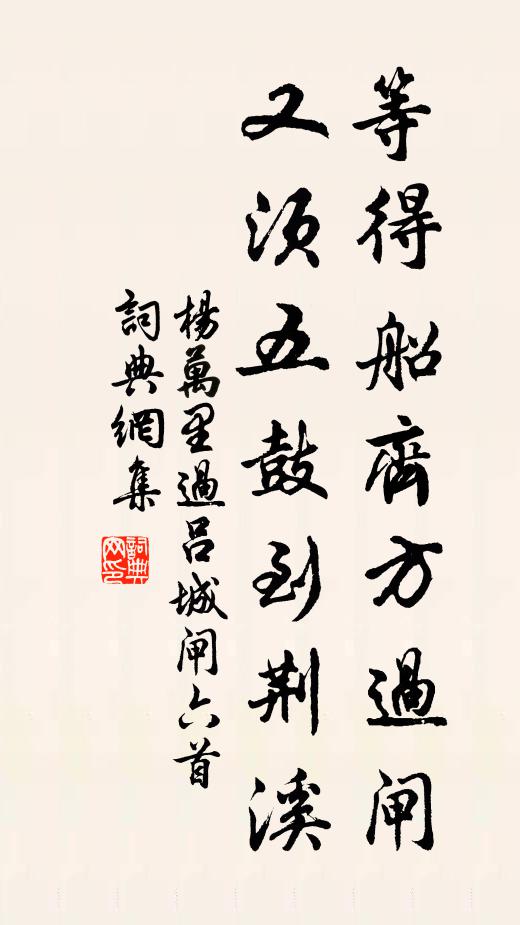 等得船齊方過閘
又須五鼓到荆溪
楊萬里過吕城閘六首
詞典網集
詞典网印